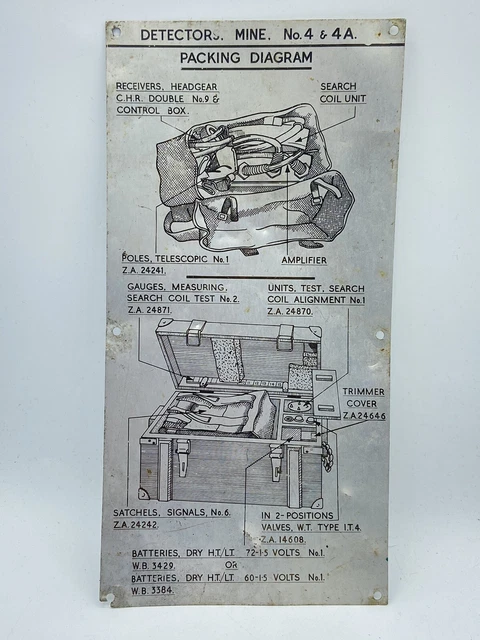 DETECTORS, MINE, No.4 & 4A.
PACKING DIAGRAM
RECEIVERS, HEADGEAR
C.H.R. DOUBLE No.9 &
CONTROL BOX.
SEARCH
COIL UNIT
POLES, TELESCOPIC No.1
Z.A. 24241.
AMPLIFIER
GAUGES, MEASURING,
SEARCH COIL TEST No.2.
Z.A. 24871.
UNITS, TEST, SEARCH
COIL ALIGNMENT No.1
Z.A. 24870.
TRIMMER
COVER
Z.A.24646
SATCHELS, SIGNALS, No.6.
Z.A. 24242.
IN 2-POSITIONS
VALVES, W.T. TYPE I.T.4.
Z.A. 14608.
BATTERIES, DRY H.T./L.T. 72-1·5 VOLTS No.1.
W.B. 3429. OR
BATTERIES, DRY H.T./L.T. 60-1·5 VOLTS No.1.
W.B. 3384.